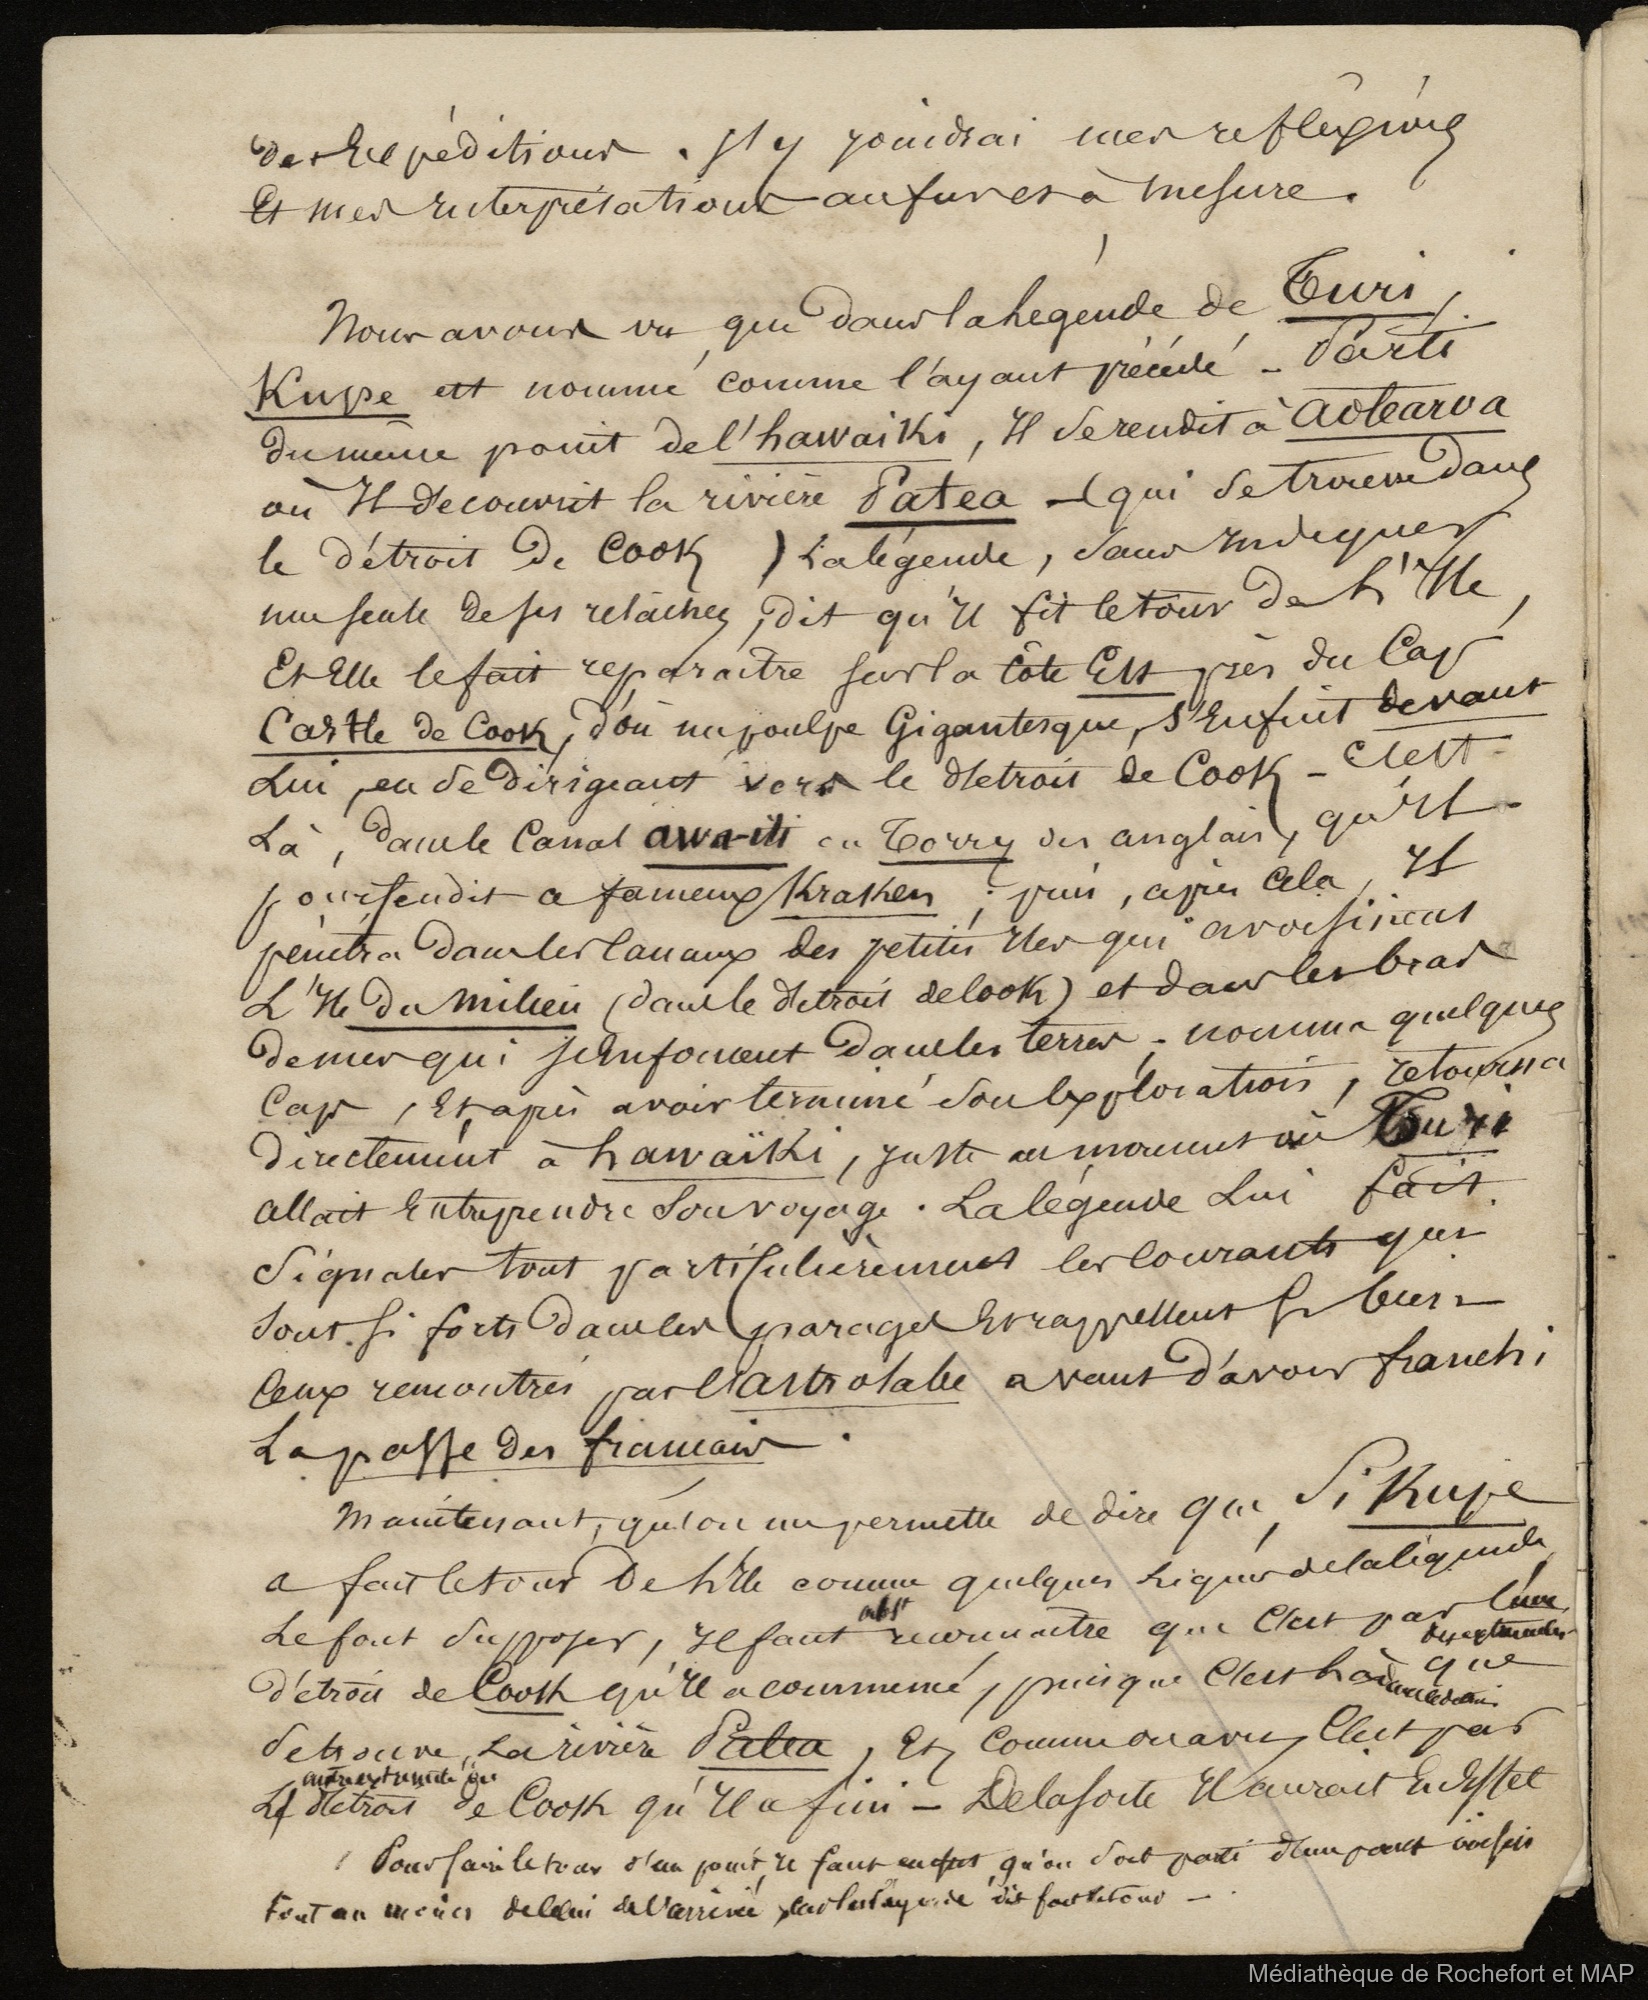 des Expéditions. J'y joindrai mes reflexions
Et mes Interprétations au fur et à mesure.
Nous avons vu que dans la Légende de Turi,
Kupe est nommé comme l'ayant précédé - Parti
du même point de l'hawaiki, Il se rendit à aotearoa
où Il decouvrit la rivière Patea - (qui se trouve dans
le détroit de Cook) La légende, sans Indiquer
une seule de ses relâches, dit qu'Il fit le tour de L'Ile,
Et Elle le fait reparaître sur la Côte Est près du Cap
Castle de Cook, d'où un poulpe Gigantesque, s'Enfuit devant
Lui, en se dirigeant vers le detroit de Cook - C'est
Là, dans le Canal awa-iti ou Torry des anglais, qu'Il
pourfendit ce fameux Kraken ; puis, après Cela, Il
pénétra dans les Canaux des petites Iles qui avoisinent
L'Ile du Milieu (dans le detroit de Cook) et dans les bras
de mer qui s'Enfoncent dans les terres ; nomma quelques
Caps, Et, après avoir terminé son Exploration, retourna
directement à hawaïki, juste au moment où Turi
allait Entreprendre Son voyage. La légende Lui fait
Signaler tout particulièrement les Courants qui
sont si forts dans les parages Et rappellent si bien
Ceux remontrés par l'astrolabe avant d'avoir franchi
La passe des français.
Maintenant, qu'on me permette de dire que, Si Kupe
a fait le tour de L'Ile comme quelques Lignes de la légende
Le font supposer, Il faut reconnaître que C'est par l'une
des extremités
détroit de Cook qu'Il a commencé, puisque C'est Là que
se trouve La rivière Patea, Et, Comme on a vu, C'est par
autre extremité du
detroit de Cook qu'Il a fini - De la sorte Il aurait En Effet
Pour faire le tour d'un point, Il faut en effet, qu'on soit parti d'un point voisin
tout au moins de celui de l'arrivée, car la légende dit fait le tour -.